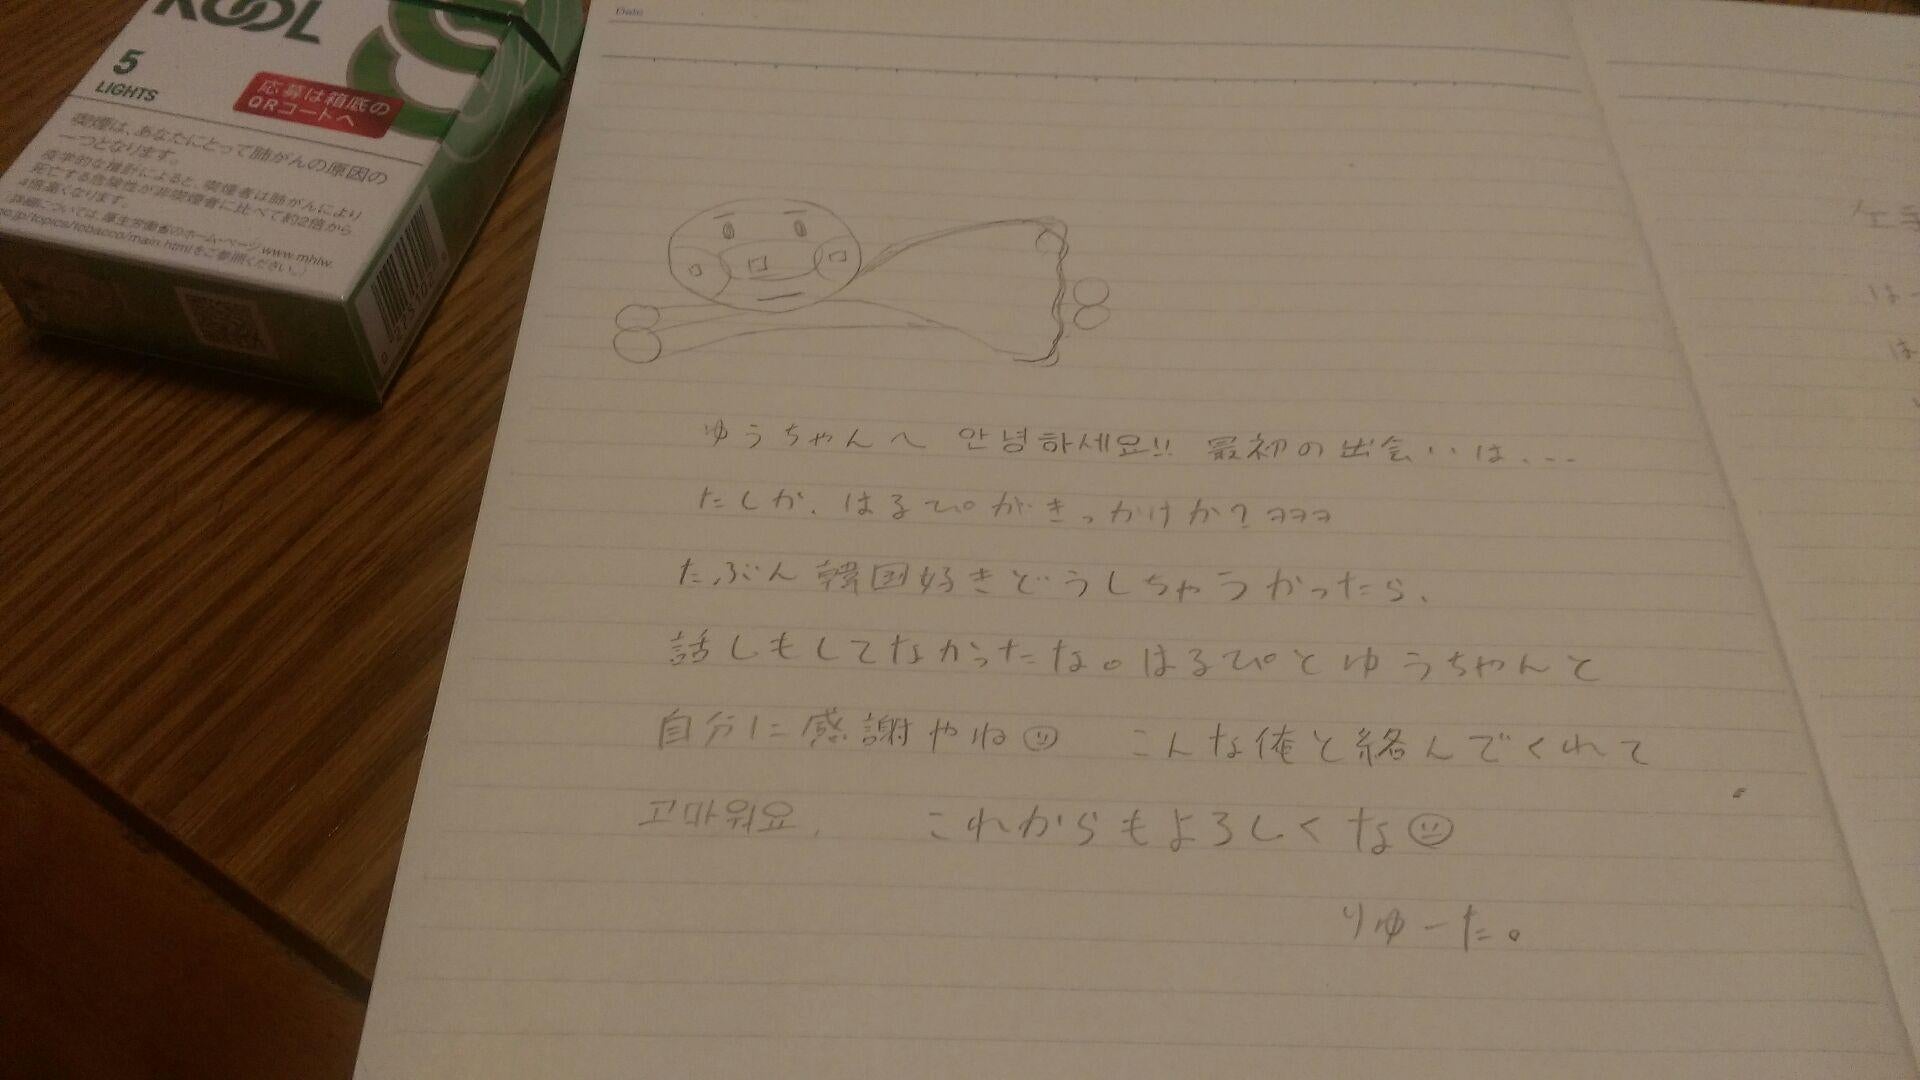 KOOL
5
LIGHTS
応募は箱底の
QRコートへ
喫煙は、あなたにとって肺がんの原因の
一つとなります。
疫学的な推計によると、喫煙者は肺がんにより
死亡する危険性が非喫煙者に比べて約2倍から
4倍高くなります。
(詳細については、厚生労働省のホーム・ページ www.mhlw.
go.jp/topics/tobacco/main.htmlをご参照ください。)
Date
ゆうちゃんへ 안녕하세요!! 最初の出会いは、...
たしか、はるぴがきっかけか?ㅋㅋㅋ
たぶん韓国好きどうしちゃうかったら、
話しもしてなかったな。はるぴとゆうちゃんと
自分に感謝やね こんな俺と絡んでくれて
고마워요. これからもよろしくな
りゅーた。